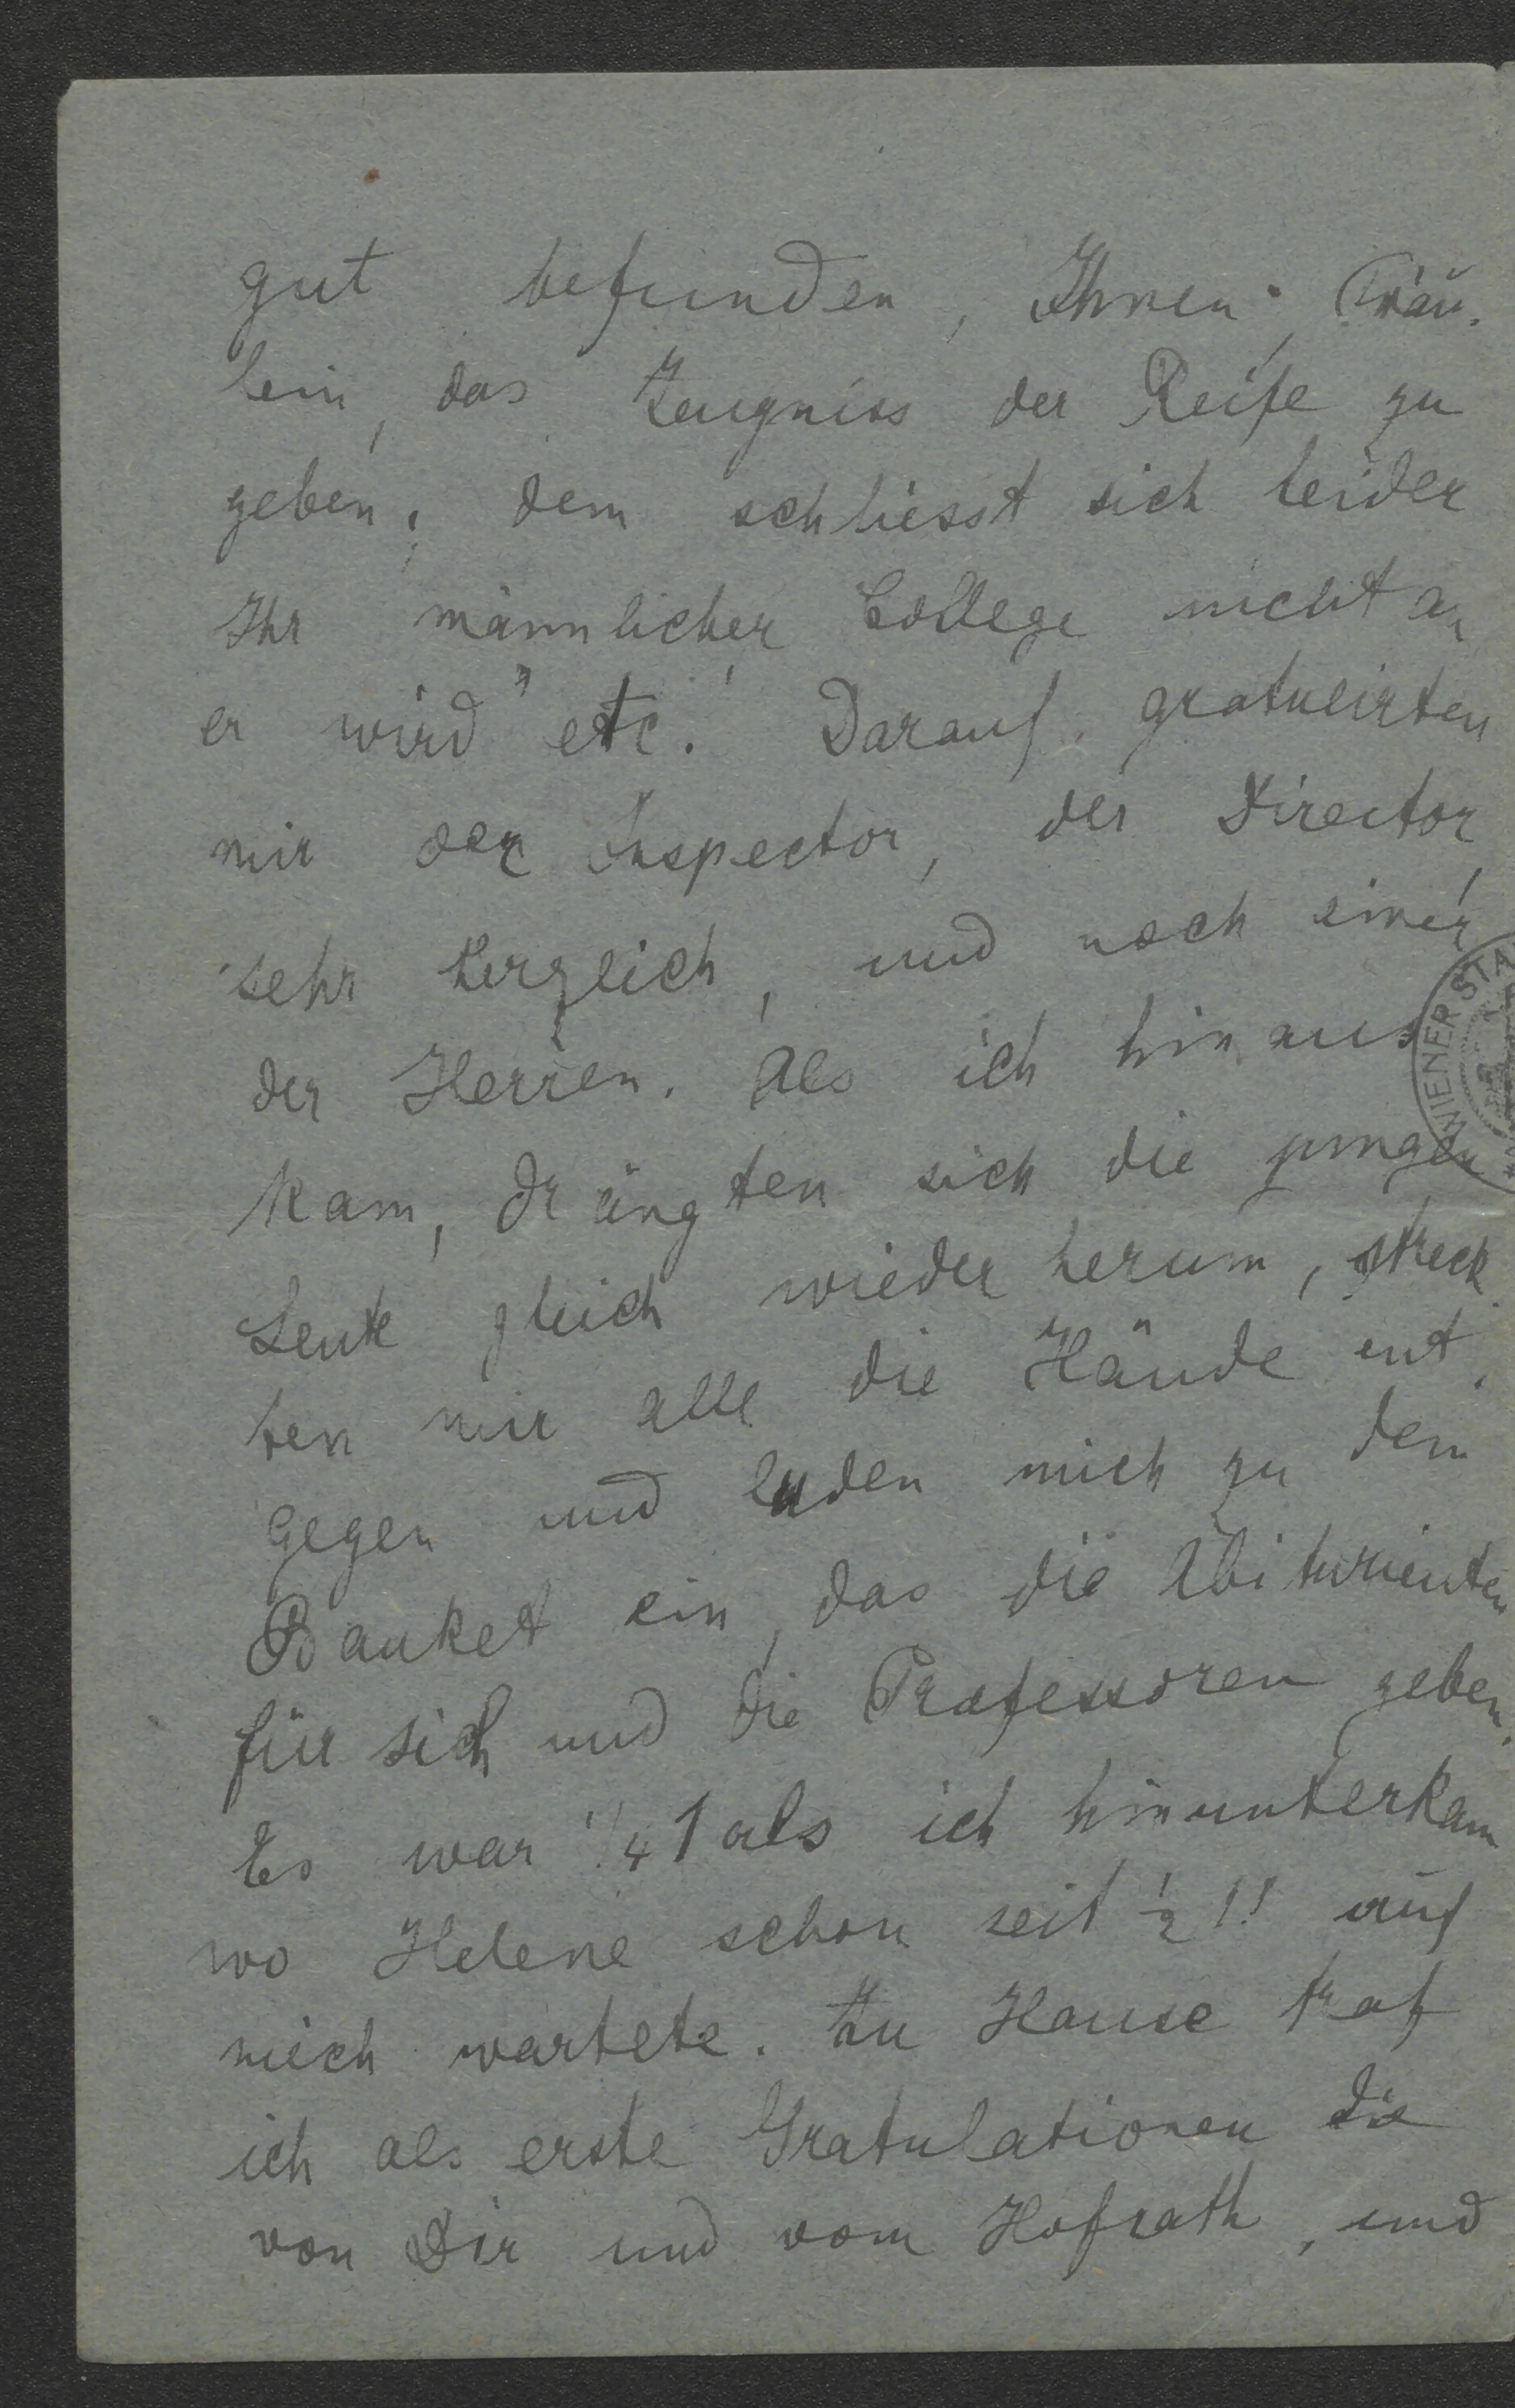 gut befunden, Ihnen, Fräu-
lein, das Zeugniss der Reife zu
geben; dem schliesst sich leider
Ihr männlicher College nicht an
er wird" etc. Darauf gratulirten
mir der Inspector, der Director,
sehr herzlich, und noch einer
der Herren. Als ich hinaus
kam, drängten sich die jungen
Leute gleich wieder herum, streck-
ten mir alle die Hände ent-
gegen und luden mich zu dem
Banket ein, das die Abiturienten
für sich und die Professoren geben.
Es war 1/4 1 als ich hinunterkam
wo Helene schon seit 1/2 11 auf
mich wartete. Zu Hause traf
ich als erste Gratulationen die
von Dir und vom Hofrath, und
WIENER STA